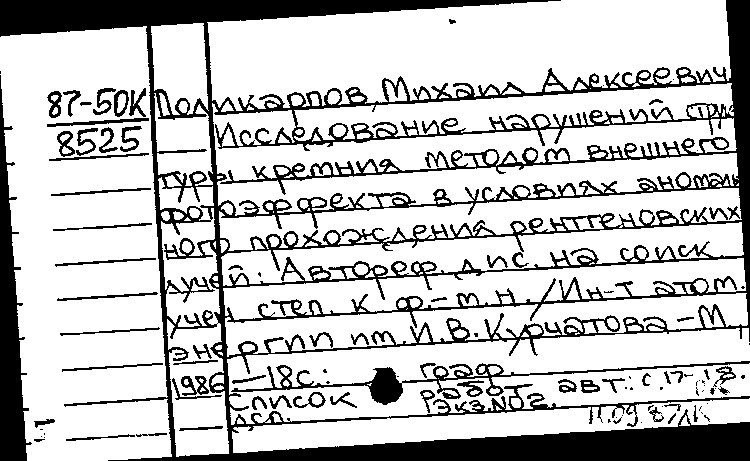 87-50К Поликарпов, Михаил Алексеевич.
8525 Исследование нарушений струк
туры кремния методом внешнего
фотоэффекта в условиях аномаль
ного прохождения рентгеновских
лучей: Автореф. дис. на соиск.
учен. степ. к. ф.-м.н. / Ин-т атом.
энергии им. И.В. Курчатова – М.,
1986 – 18с.: граф.
Список работ авт.: с.17-18.
ДСП. Экз.№02.
11.09.87